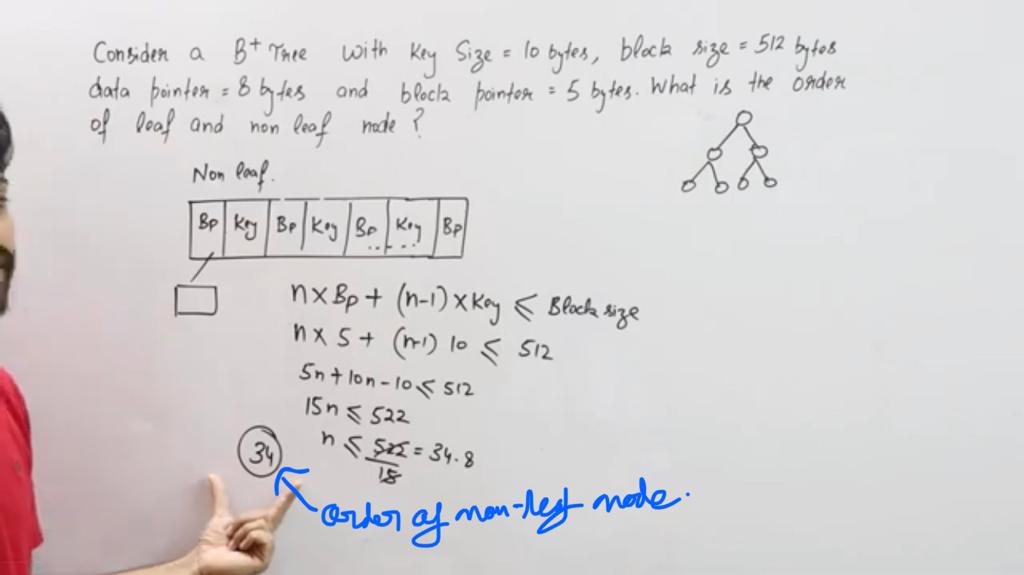 Consider a B+ Tree with Key Size = 10 bytes, block size = 512 bytes
data pointer = 8 bytes and block pointer = 5 bytes. What is the order
of leaf and non leaf node ?
Non leaf.
Bp Key Bp Key Bp Key Bp
n×Bp + (n-1)×Key ≤ Block size
n×5 + (n-1) 10 ≤ 512
5n+10n-10 ≤ 512
15n ≤ 522
n ≤ 522/15 = 34.8
34
order of non-leaf node.